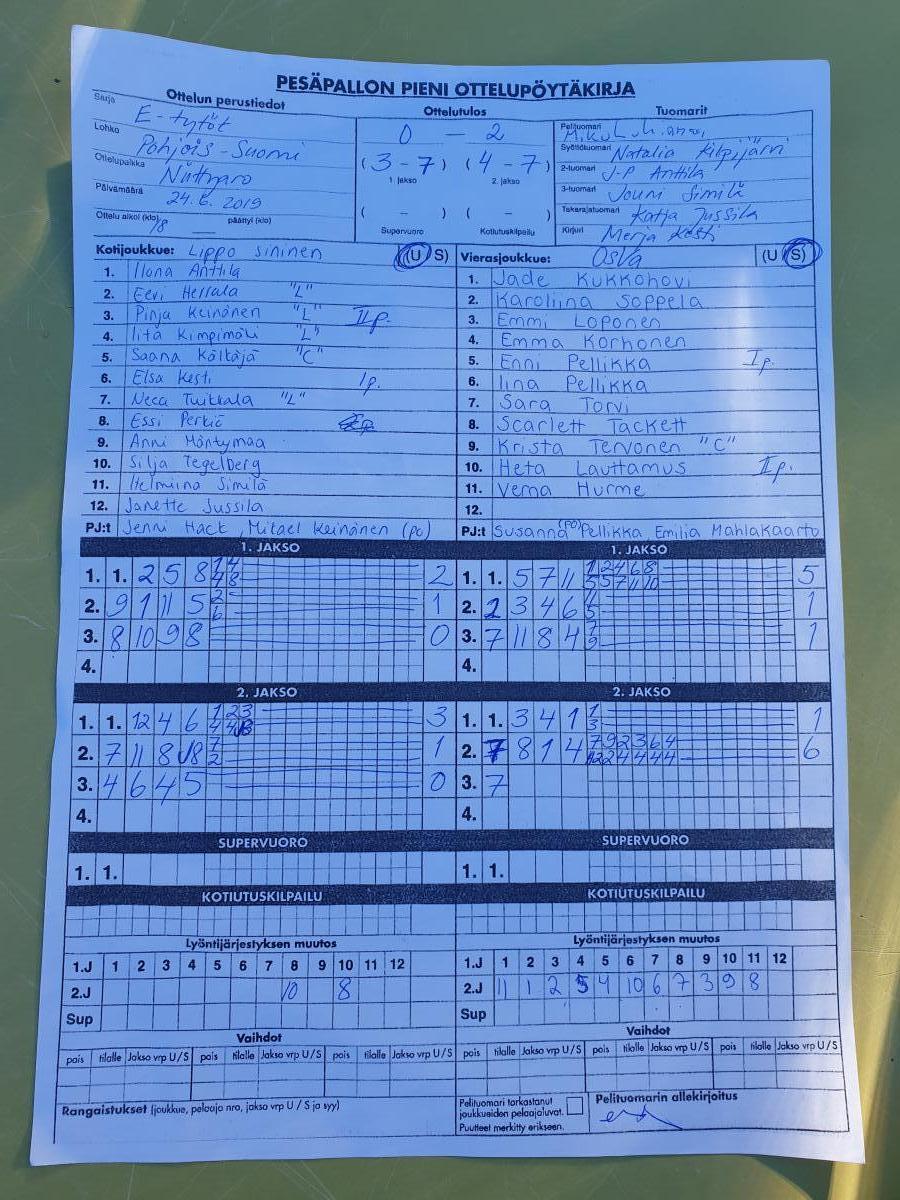 PESÄPALLON PIENI OTTELUPÖYTÄKIRJA
Ottelun perustiedot
Sarja E-tytöt
Lohko Pohjois-Suomi
Ottelupaikka Niittyaro
Päivämäärä 24.6.2019
Ottelu alkoi (klo) 18 päättyi (klo)
Ottelutulos
0 – 2
(3 – 7) (4 – 7)
1 jakso 2. jakso
( – ) ( – )
Supervuoro Kotiutuskilpailu
Tuomarit
Pelituomari
Syöttötuomari Natalia Kilpijärvi
2-tuomari J-P Anttila
3-tuomari Jouni Similä
Takarajatuomari Katja Jussila
Kirjuri Merja Kesti
Kotijoukkue: Lippo sininen (U S)
1. Ilona Anttila
2. Eevi Herrala "L"
3. Pinja Keinänen "L" II p.
4. Iita Kimpimäki "L"
5. Saana Költäjä "C"
6. Elsa Kesti I p.
7. Neea Tuikkala "L"
8. Essi Perkiö
9. Anni Mäntymaa
10. Silja Tegelberg
11. Helmiina Similä
12. Janette Jussila
PJ:t Jenni Hack, Mikael Keinänen (po)
Vierasjoukkue: OsVa (U S)
1. Jade Kukkohovi
2. Karoliina Soppela
3. Emmi Loponen
4. Emma Korhonen
5. Enni Pellikka I p.
6. Iina Pellikka
7. Sara Torvi
8. Scarlett Tackett
9. Krista Tervonen "C"
10. Heta Lauttamus II p.
11. Verna Hurme
12.
PJ:t Susanna (PO) Pellikka Emilia Mahlakaarto
1. JAKSO
1. 1. 2 5 8 1 4 2
4 8
2. 9 1 11 5 2 1
6
3. 8 10 9 8 0
4.
1. JAKSO
1. 1. 5 7 11 1 2 4 6 8 5
5 5 7 11 10
2. 2 3 4 6 11 1
5
3. 7 11 8 4 7 1
9
4.
2. JAKSO
1. 1. 12 4 6 1 2 3 3
4 4
2. 7 11 8 7 1
2
3. 4 6 4 5 0
4.
2. JAKSO
1. 1. 3 4 1 1 1
3
2. 7 8 1 4 7 9 2 3 6 4 6
12 2 4 4 4 4
3. 7
4.
SUPERVUORO
1. 1.
SUPERVUORO
1. 1.
KOTIUTUSKILPAILU
KOTIUTUSKILPAILU
Lyöntijärjestyksen muutos
1.J 1 2 3 4 5 6 7 8 9 10 11 12
2.J 10 8
Sup
Lyöntijärjestyksen muutos
1.J 1 2 3 4 5 6 7 8 9 10 11 12
2.J 11 1 2 5 4 10 6 7 3 9 8
Sup
Vaihdot
pois tilalle Jakso vrp U/S pois tilalle Jakso vrp U/S pois tilalle Jakso vrp U/S
Vaihdot
pois tilalle Jakso vrp U/S pois tilalle Jakso vrp U/S pois tilalle Jakso vrp U/S
Rangaistukset (joukkue, pelaaja nro, jakso vrp U / S ja syy)
Pelituomari tarkastanut
joukkueiden pelaajaluvat.
Puutteet merkitty erikseen.
Pelituomarin allekirjoitus